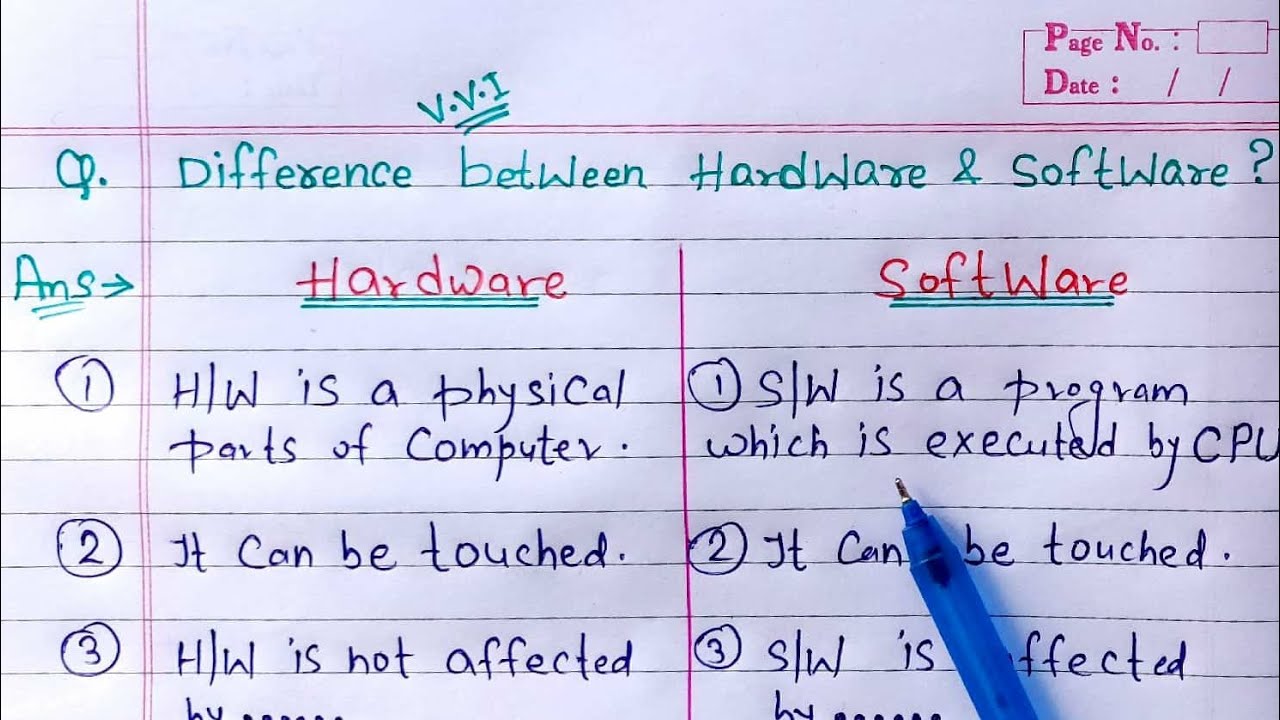 Page No. :
Date : / /
V.V.I
Q. Difference between Hardware & Software ?
Ans→ Hardware Software
① H/W is a physical parts of Computer.
① S/W is a program which is executed by CPU
② It can be touched.
② It can be touched.
③ H/W is not affected by ......
③ S/W is affected by ......